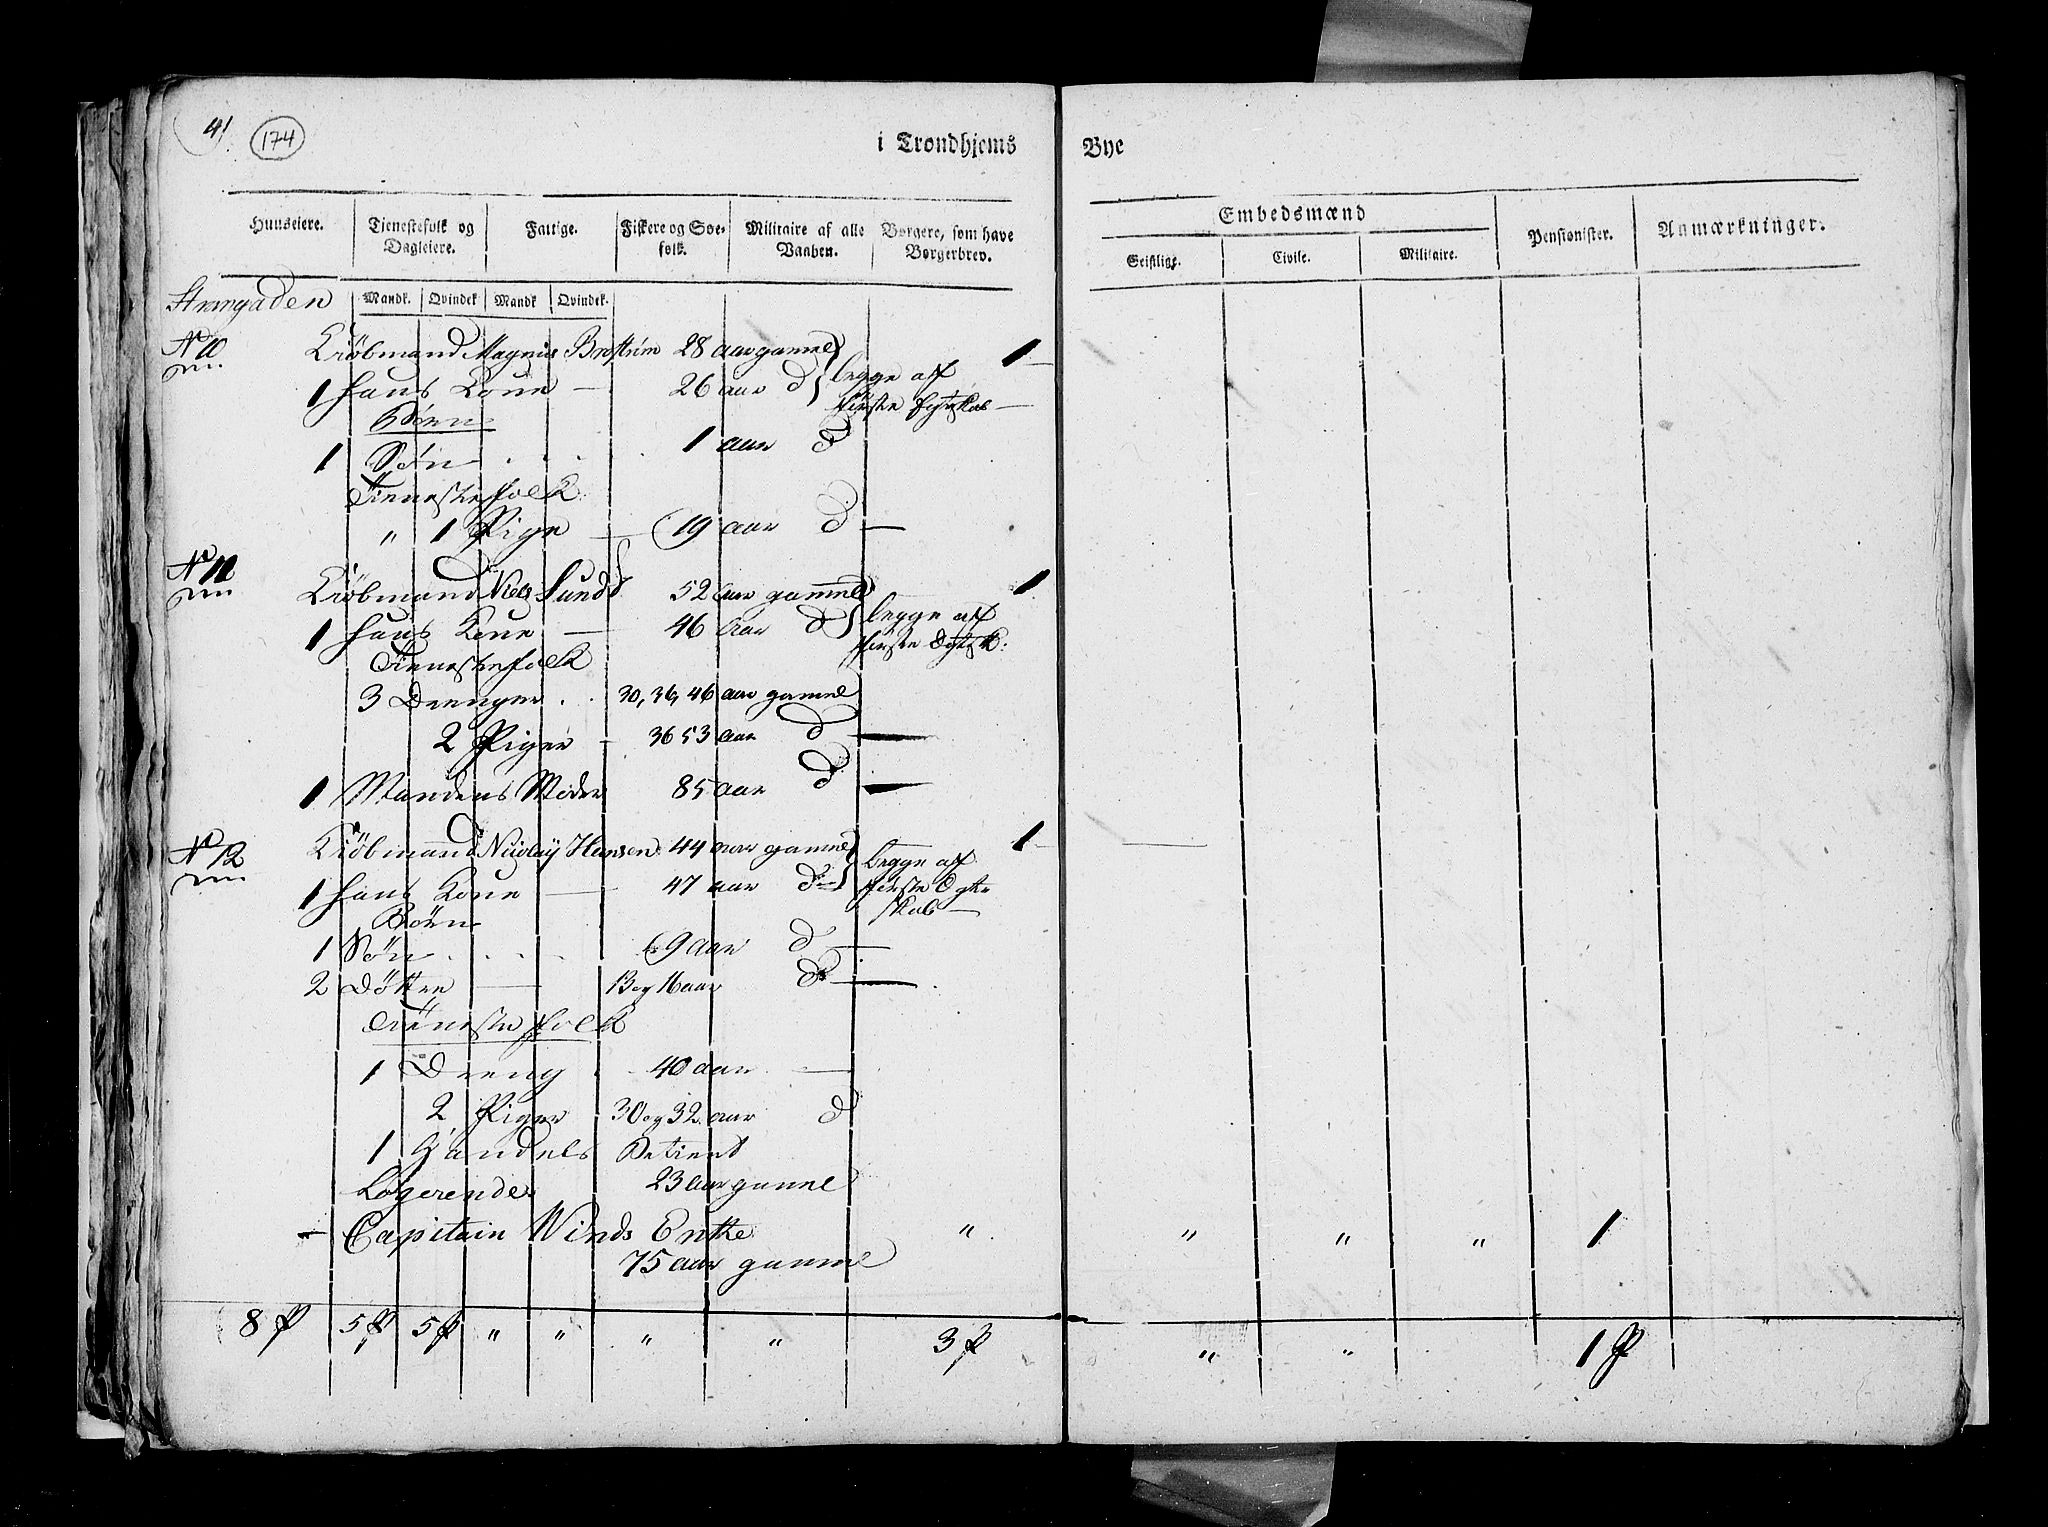 41.
174
i Trondhjems Bye
Huuseiere. Tjenestefolk og Dagleiere. Fattige. Fiskere og Søefolk. Militaire af alle Vaaben. Borgere, som have Borgerbrev. Embedsmænd Pensionister. Anmærkninger.
Geistlige. Civile. Militaire.
Mandk. Qvindek Mandk Qvindek.
Strangaden
No 10 Kiöbmand Magnus Broström 28 aar gammel 1
1 Hans Kone — 26 aar do begge af
første Egteskab —
Börn
1 Sön . . . 1 aar do
Tieneste folk
" 1 Pige — 19 aar do —
No 11 Kiöbmand Niels Lundt 52 aar gammel 1
1 Hans Kone — 46 aar do begge af
første Egtsk:
Tieneste folk
3 Drenger . . 30, 36, 46 aar gamel
2 Piger — 36 53 aar do —
1 Mandens Moder 85 aar do —
No 12 Kiöbmand Nicolay Hansen 44 aar gammel 1
1 Hans Kone — 47 aar do begge af
første Egte
skab —
Börn
1 Sön . . . . 9 aar do —
2 Döttre — 13 og 16 aar do —
Tieneste folk
1 Dreng . 40 aar —
2 Piger 30 og 32 aar do
1 Handels Betient
23 aar gammel
Logerende
— Capitain Winds Enke " " " " 1
75 aar gammel
8 P 5 P 5 P " " " " 3 P " " 1 P "